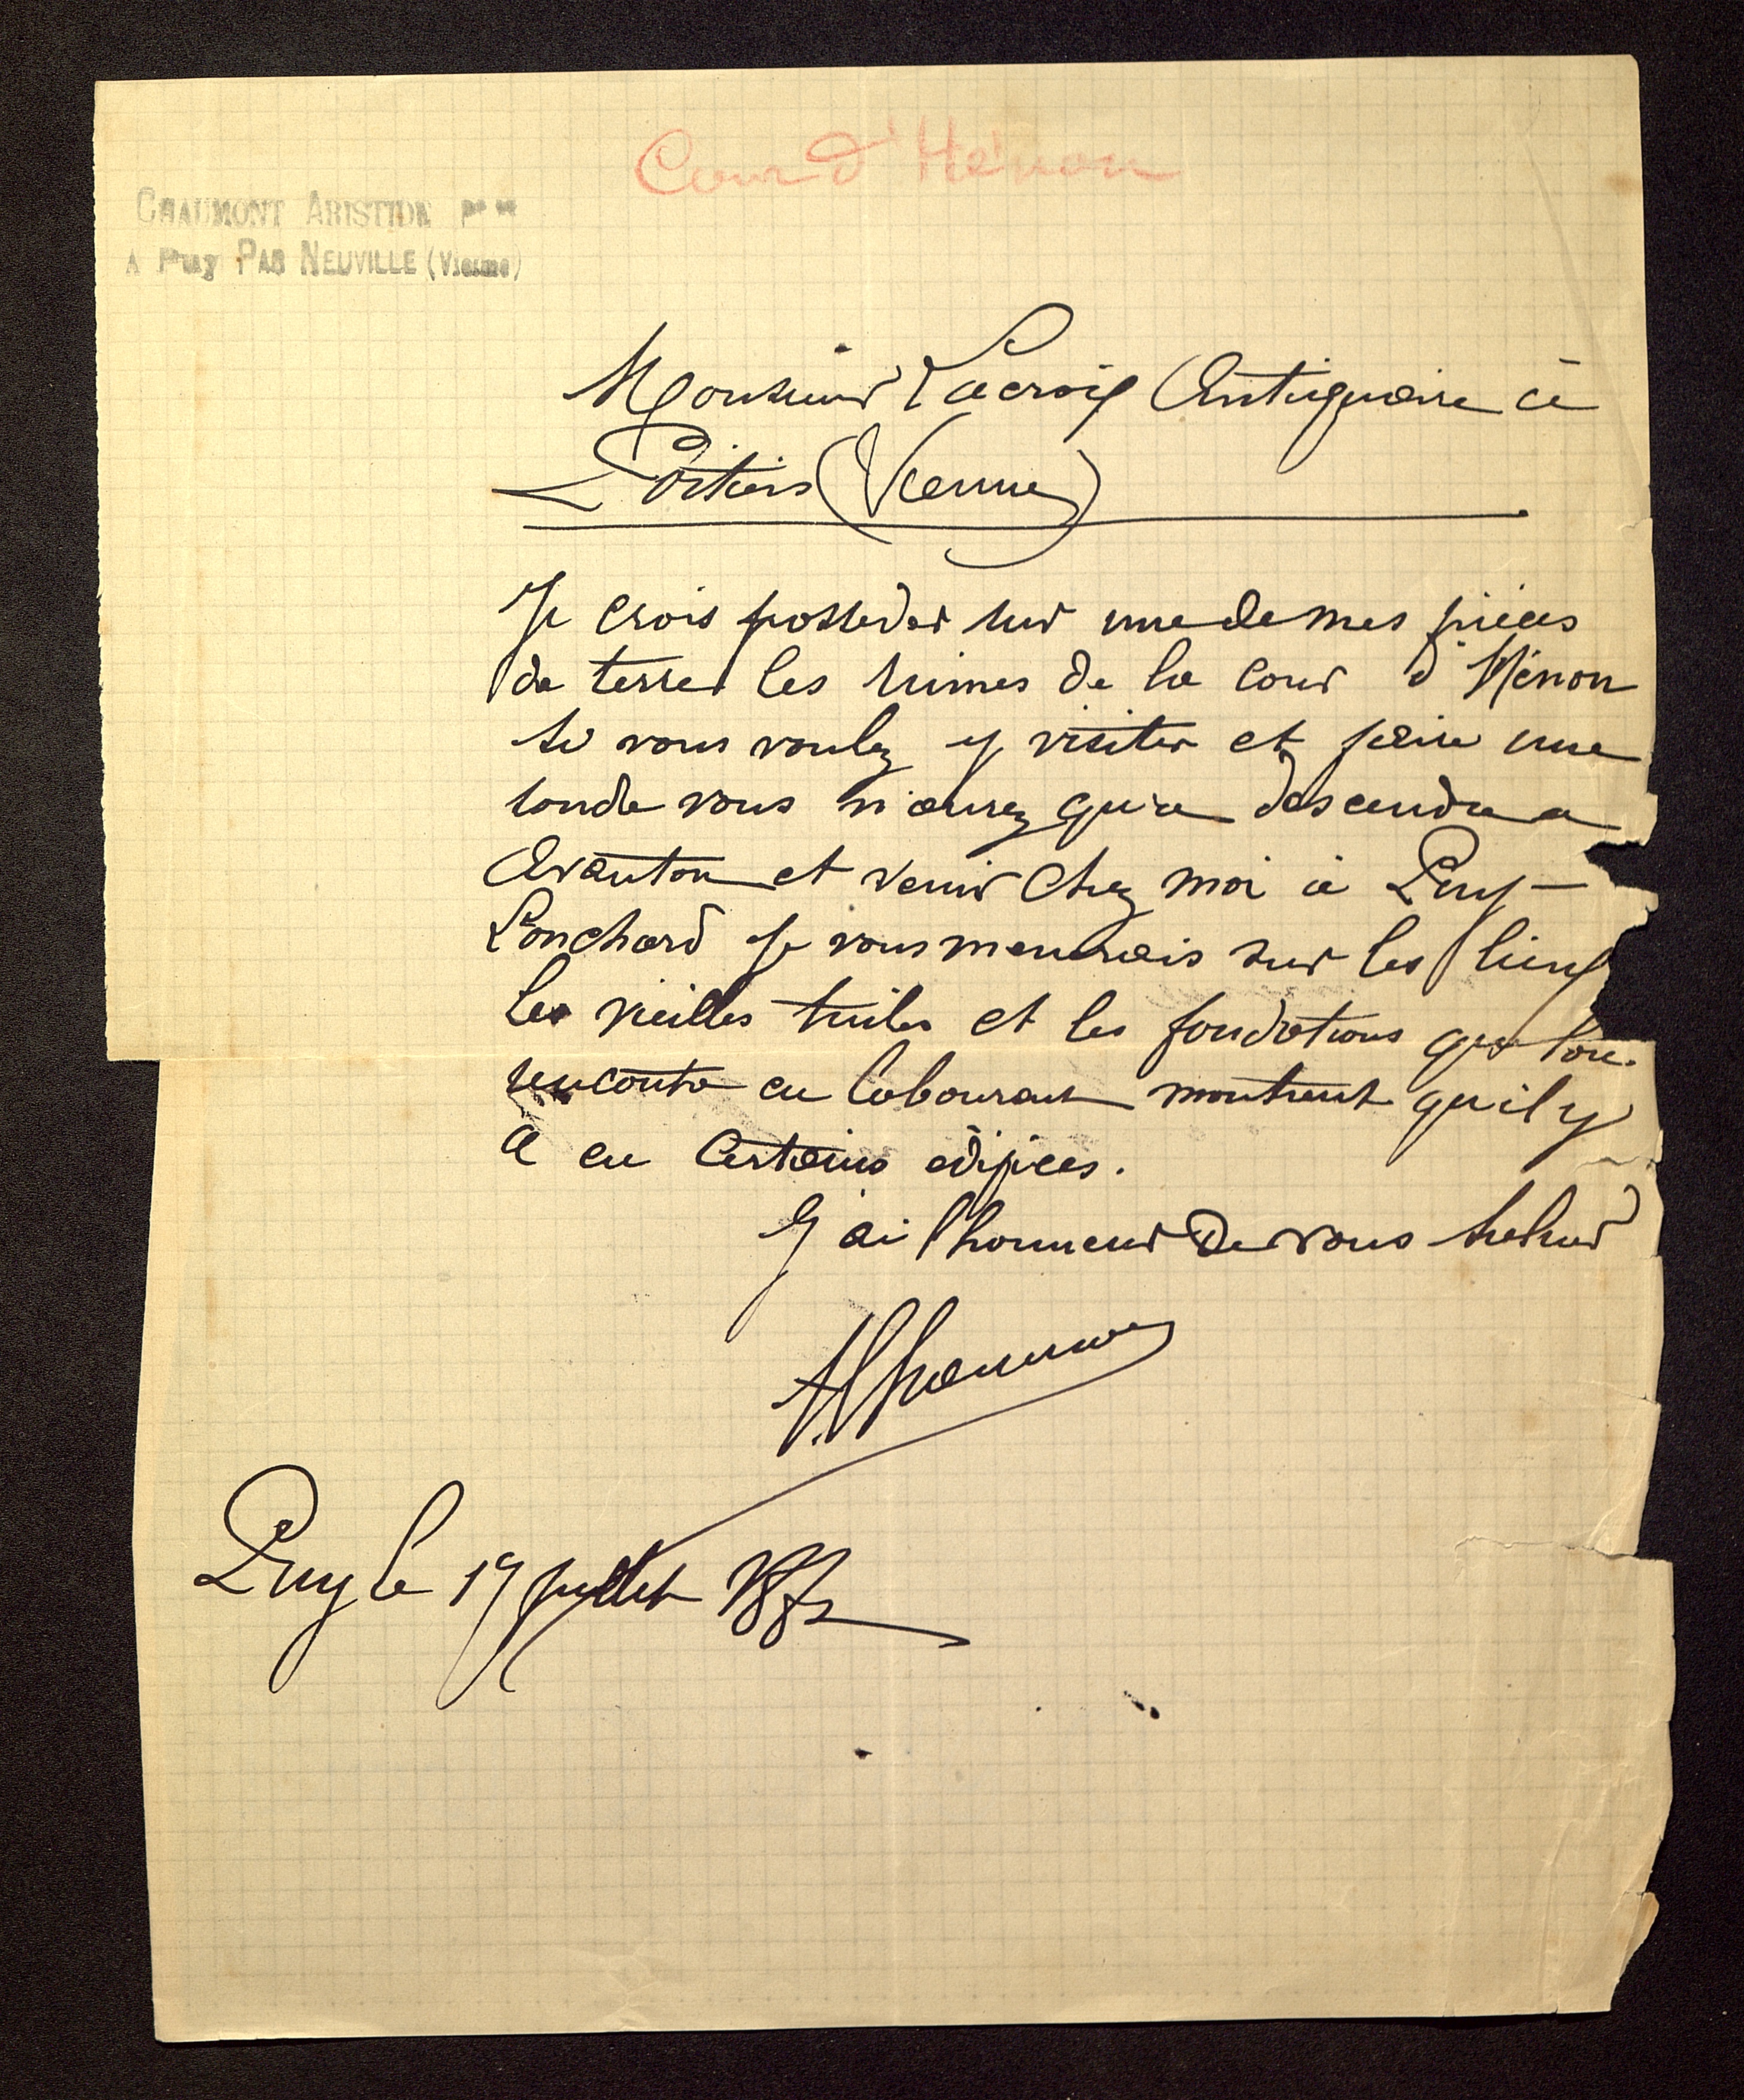 Cour d'Hénon
CHAUMONT ARISTIDE
A Puy PAR NEUVILLE (Vienne)
Monsieur Lacroix Antiquaire à
Poitiers (Vienne)
Je crois posseder sur une de mes pièces
de terre les ruines de la cour d'Hénon
si vous voulez y visiter et faire une
sonde vous n'aurez qu'a descendre a
Avanton et venir chez moi à Puy-
Lonchard Je vous menerais sur les lieux
les vieilles tuiles et les fondations que l'on
rencontre en labourant montrent qu'il y
a eu certains edifices.
J'ai l'honneur de vous saluer
AChaumont
Puy le 19 juillet